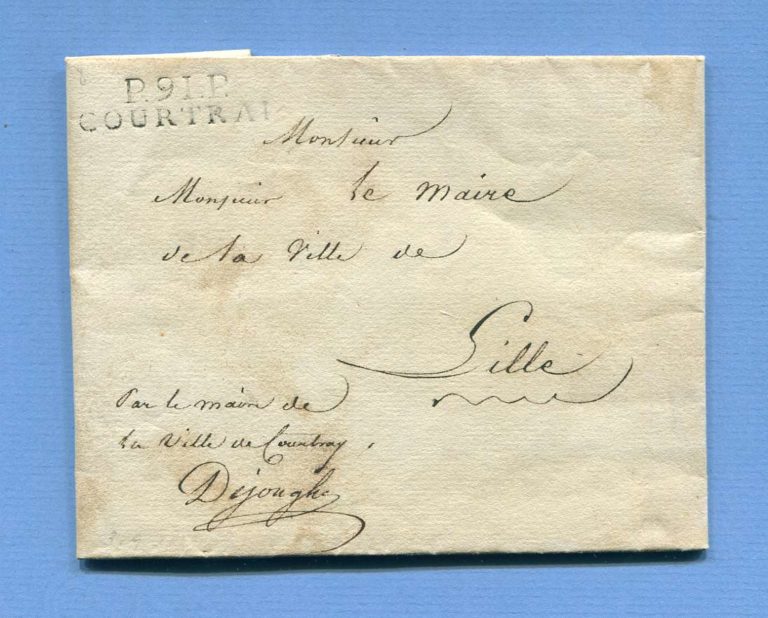 P.91.P.
COURTRAI
Monsieur
Monsieur le Maire
de la Ville de
Lille
Par le maire de
la Ville de Courtray.
Dejonghe